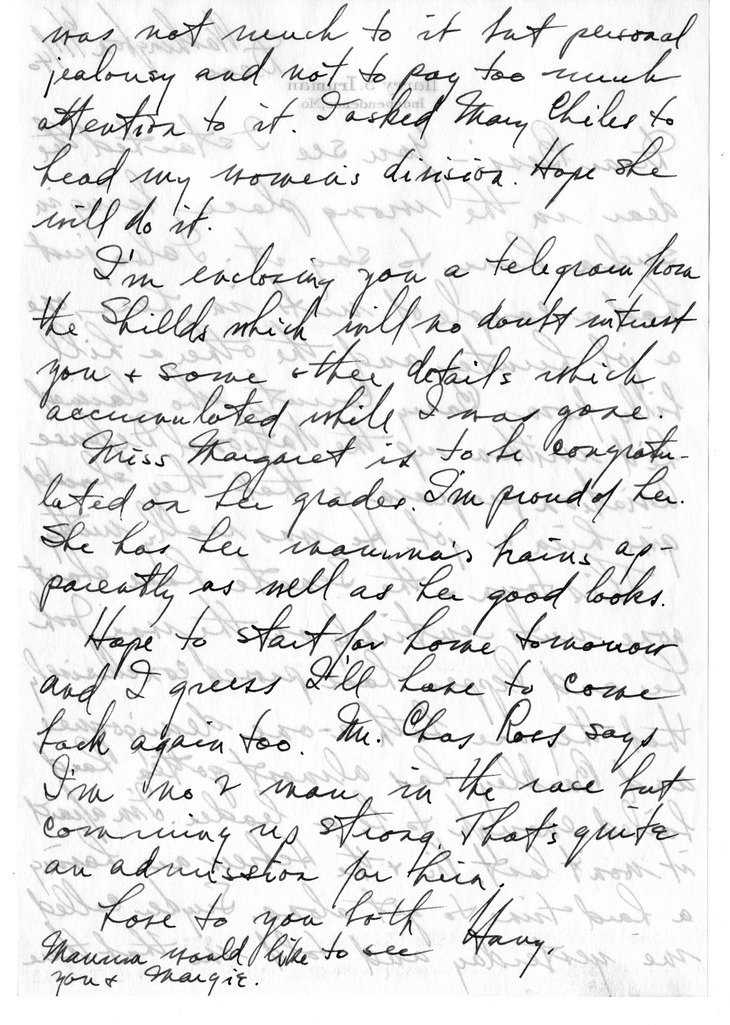 was not much to it but personal
jealousy and not to pay too much
attention to it. I asked Mary Chiles to
head my women's division. Hope she
will do it.
I'm enclosing you a telegram from
the Shields which will no doubt interest
you + some other details which
accumulated while I was gone.
Miss Margaret is to be congratu-
lated on her grades. I'm proud of her.
She has her mamma's brains ap-
parently as well as her good looks.
Hope to start for home tomorrow
and I guess I'll have to come
back again too. Mr. Chas Ross says
I'm no 2 man in the race but
comming up strong. That's quite
an admission for him.
Love to you both Harry.
Mamma would like to see
you + Margie.